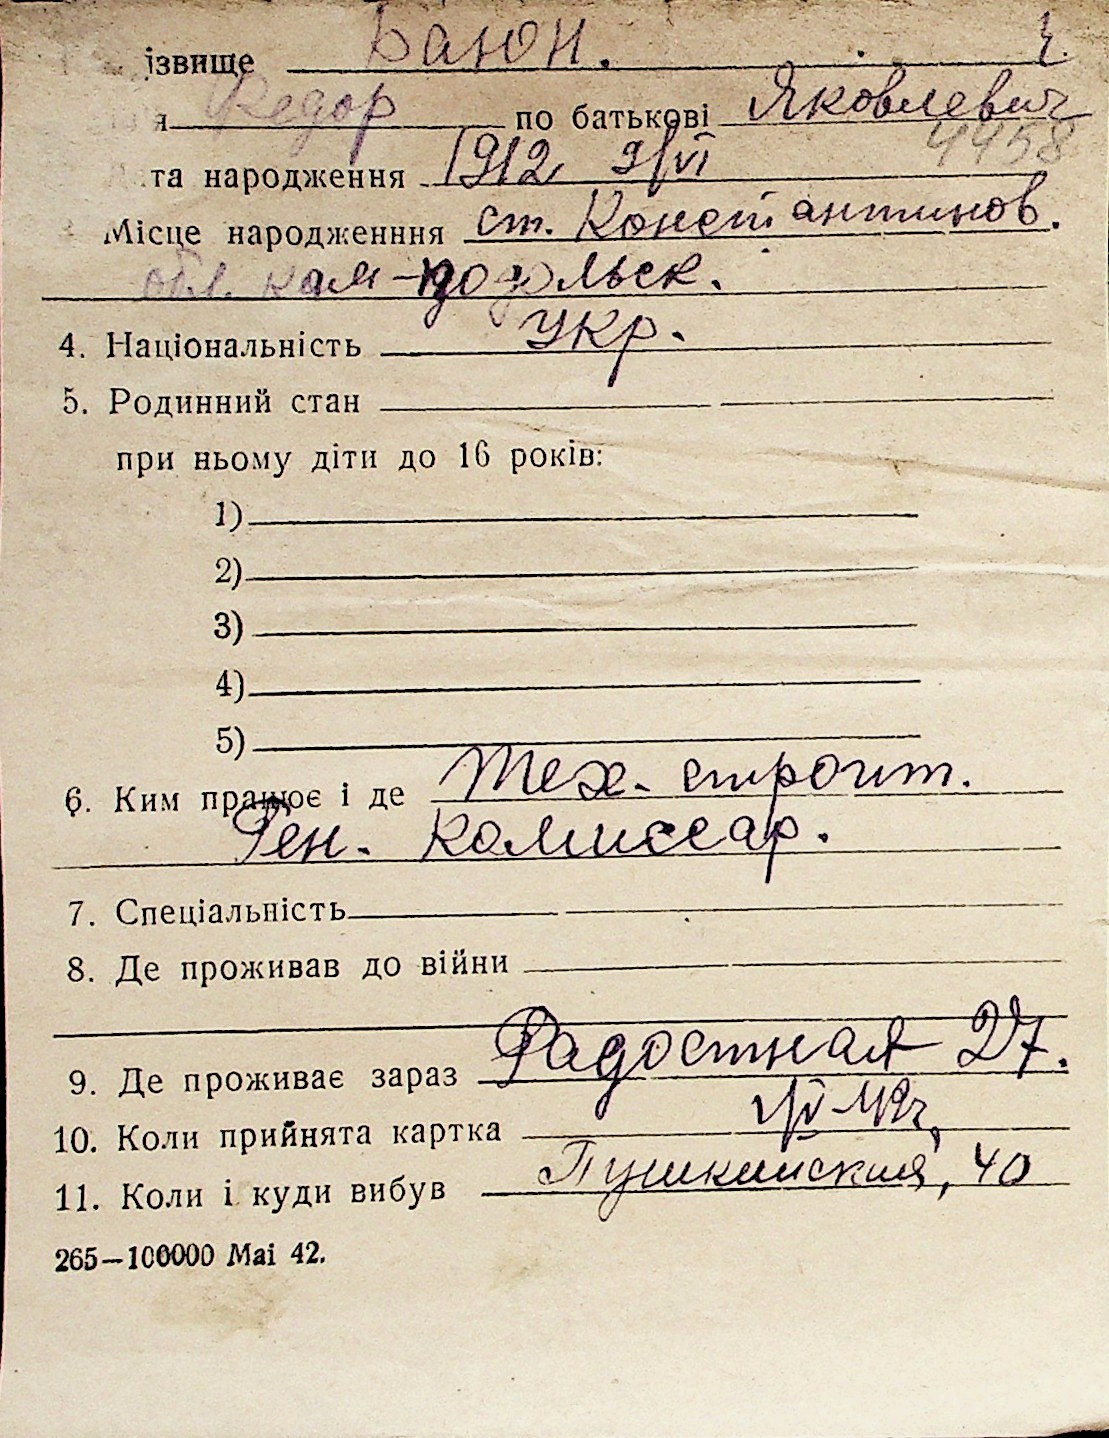 ізвище Баюн. ч.
я Федор по батькові Яковлевич
4458
та народження 1912 9/VI
Місце народженння ст. Константинов.
обл. кам-подольск.
4. Національність укр.
5. Родинний стан
при ньому діти до 16 років:
1)
2)
3)
4)
5)
6. Ким працює і де тех. строит.
Ген. комиссар.
7. Спеціальність
8. Де проживав до війни
9. Де проживає зараз Радостная 27.
10. Коли прийнята картка
11. Коли і куди вибув Пушкинская, 40
265—100000 Mai 42.